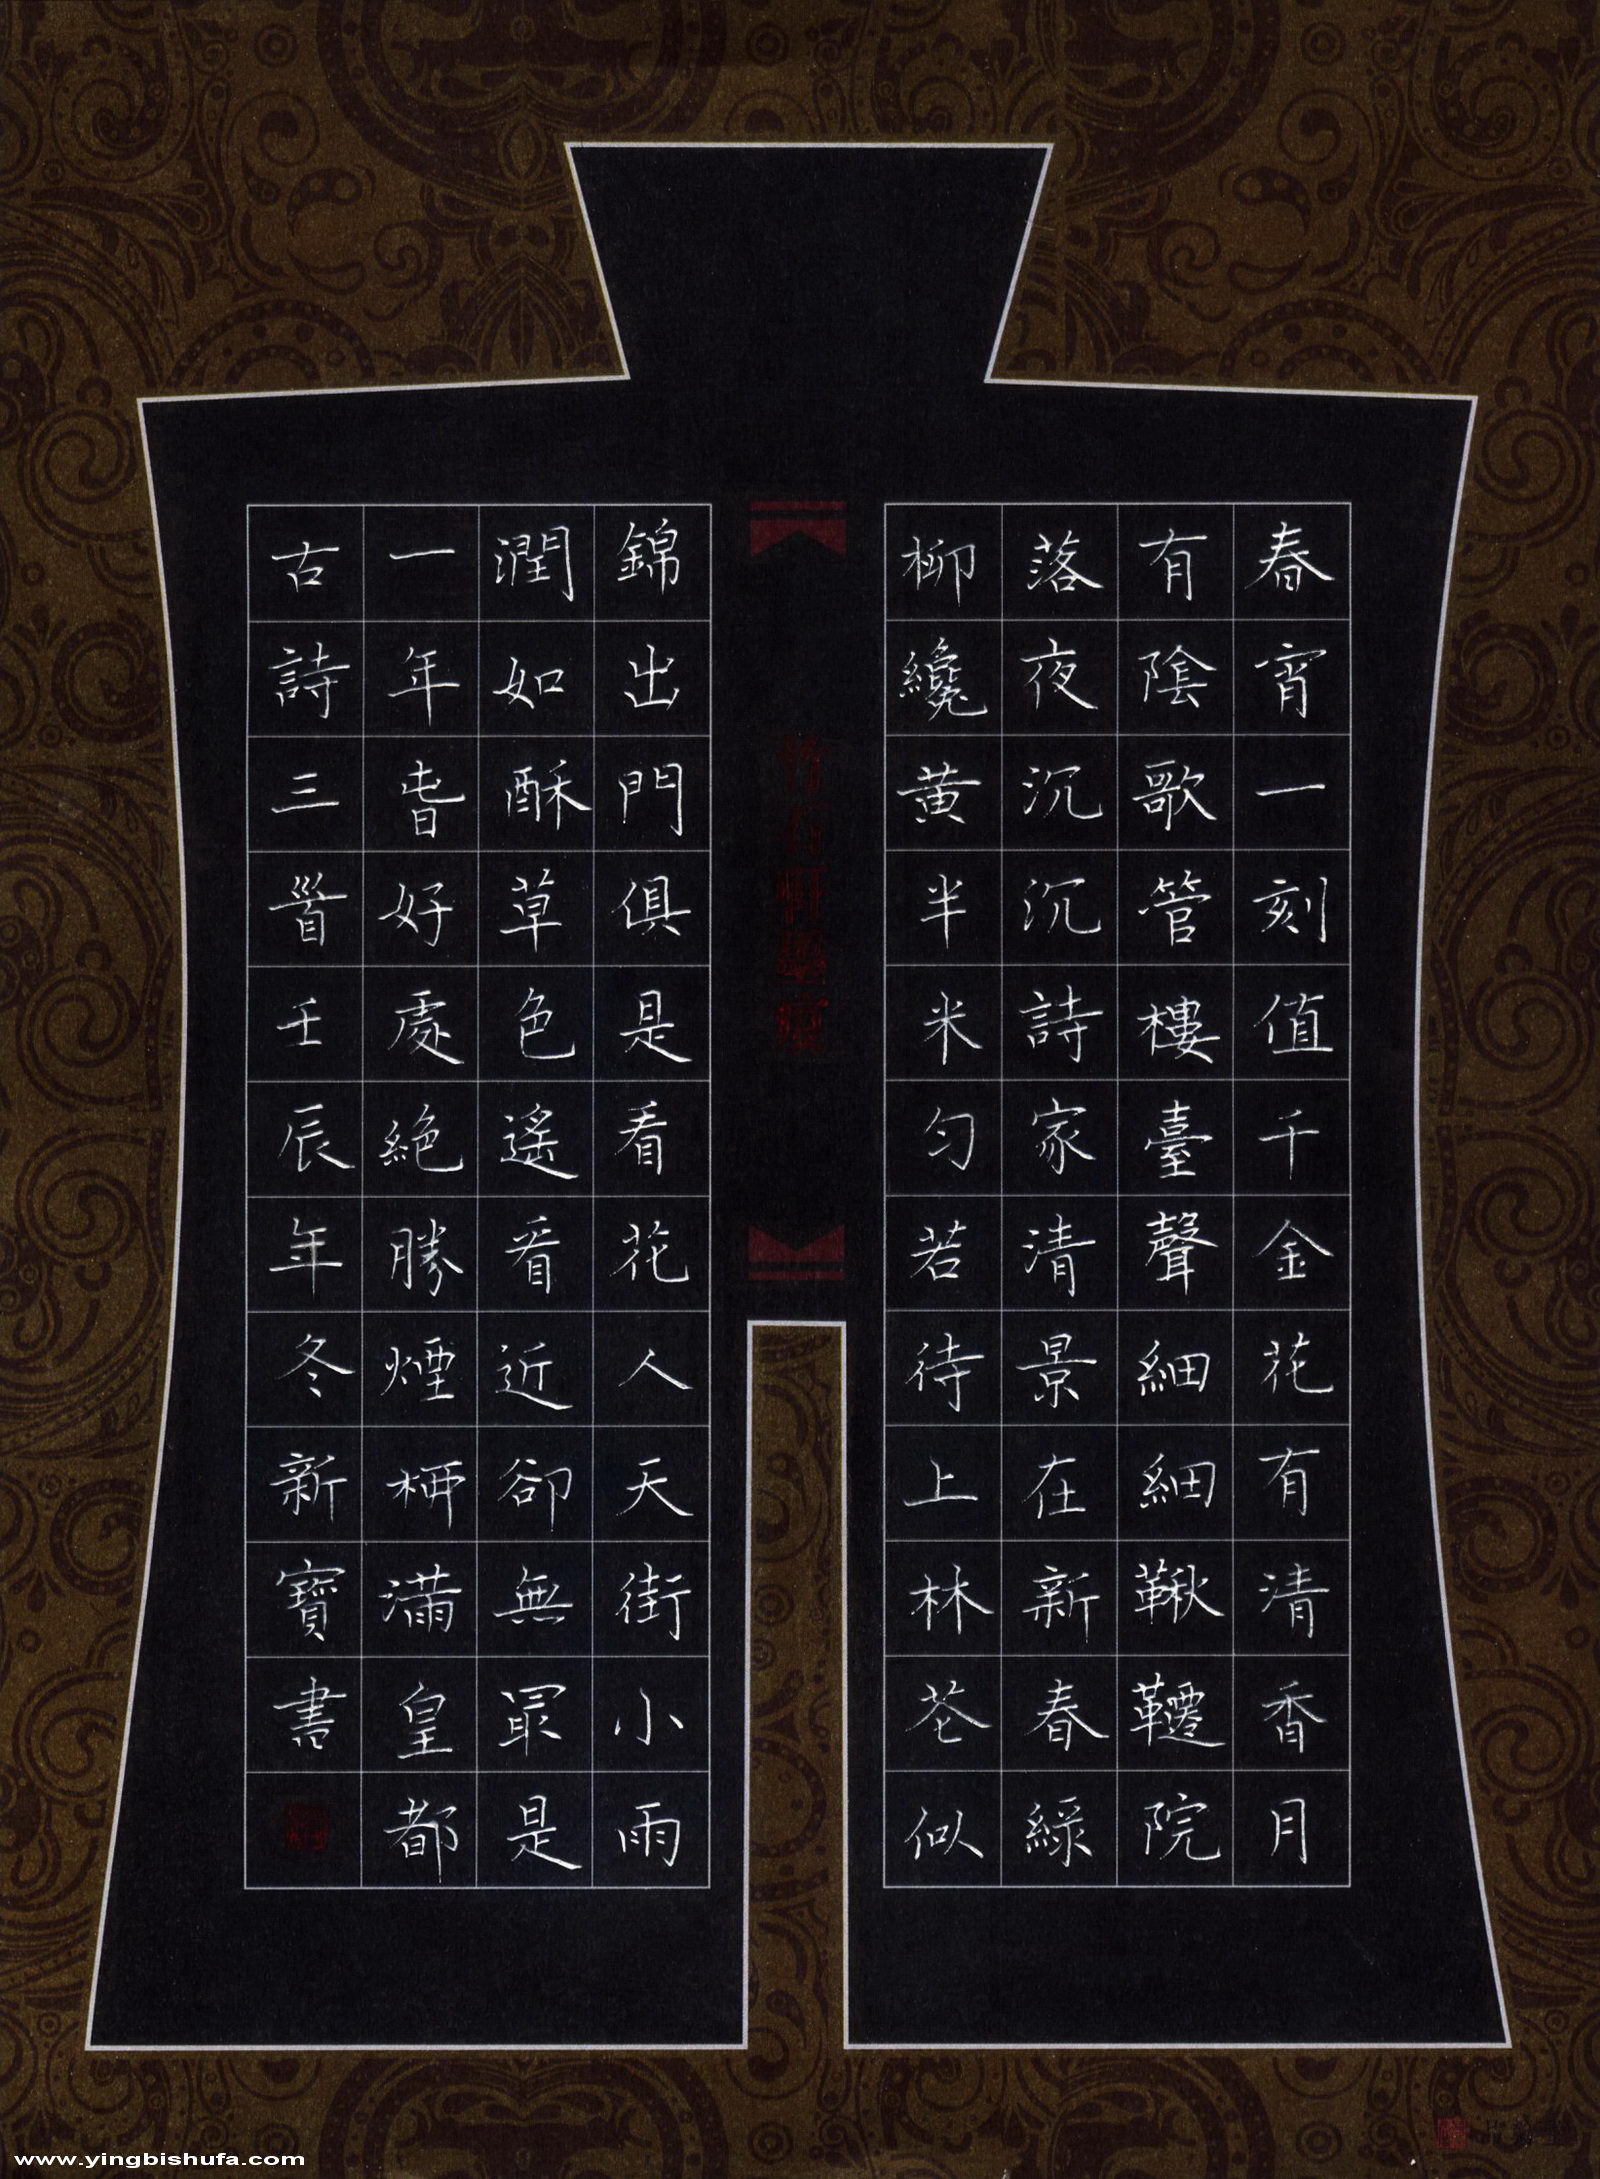 春宵一刻值千金花有清香月
有陰歌管樓臺聲細細鞦韆院
落夜沉沉詩家清景在新春綠
柳纔黃半未勻若待上林花似
錦出門俱是看花人天街小雨
潤如酥草色遙看近卻無最是
一年春好處絕勝煙柳滿皇都
古詩三首壬辰年冬新寶書
www.yingbishufa.com